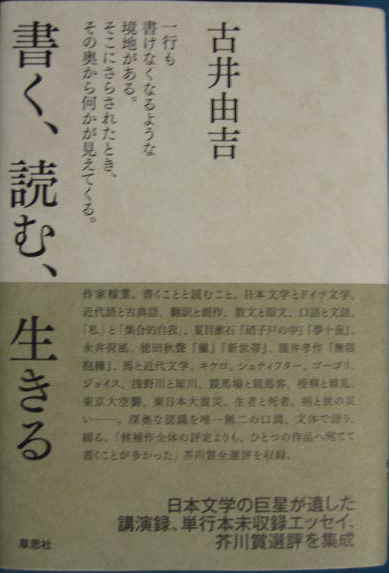 古井由吉
一行も
書けなくなるような
境地がある。
そこにさらされたとき、
その奥から何かが見えてくる。
書く、読む、生きる
作家稼業、書くことと読むこと、日本文学とドイツ文学、
近代語と古典語、翻訳と創作、散文と韻文、口語と文語、
「私」と「集合的自我」、夏目漱石『硝子戸の中』『夢十夜』、
永井荷風、徳田秋聲『黴』『新世帯』、瀧井孝作『無限
抱擁』、馬と近代文学、キケロ、シュティフター、ゴーゴリ、
ジョイス、浅野川と犀川、競馬場と競馬客、疫病と戦乱、
東京大空襲、東日本大震災、生者と死者、病と世の災
い――。深奥な認識を唯一無二の口調、文体で語り、
綴る。「候補作全体の評定よりも、ひとつの作品へ宛てて
書くことが多かった」芥川賞全選評を収録。
日本文学の巨星が遺した
講演録、単行本未収録エッセイ、
芥川賞選評を集成
草思社